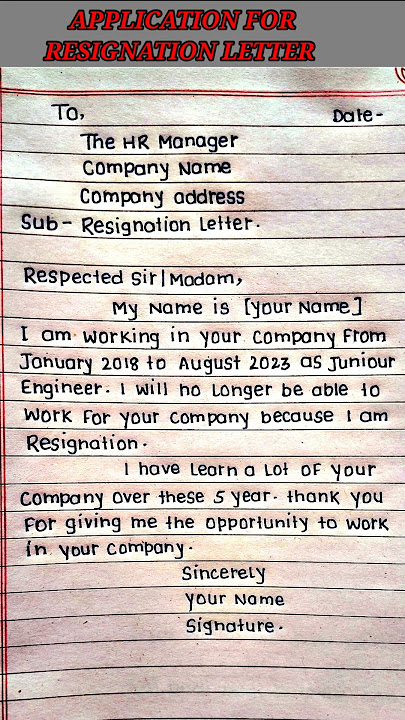 APPLICATION FOR
RESIGNATION LETTER
To, Date-
The HR Manager
Company Name
Company address
Sub- Resignation Letter.
Respected Sir|Madam,
My Name is [your Name]
I am working in your company from
January 2018 to August 2023 as Juniour
Engineer. I will no longer be able to
work for your company because I am
Resignation.
I have learn a lot of your
company over these 5 year. thank you
for giving me the opportunity to work
in your company.
Sincerely
your Name
Signature.